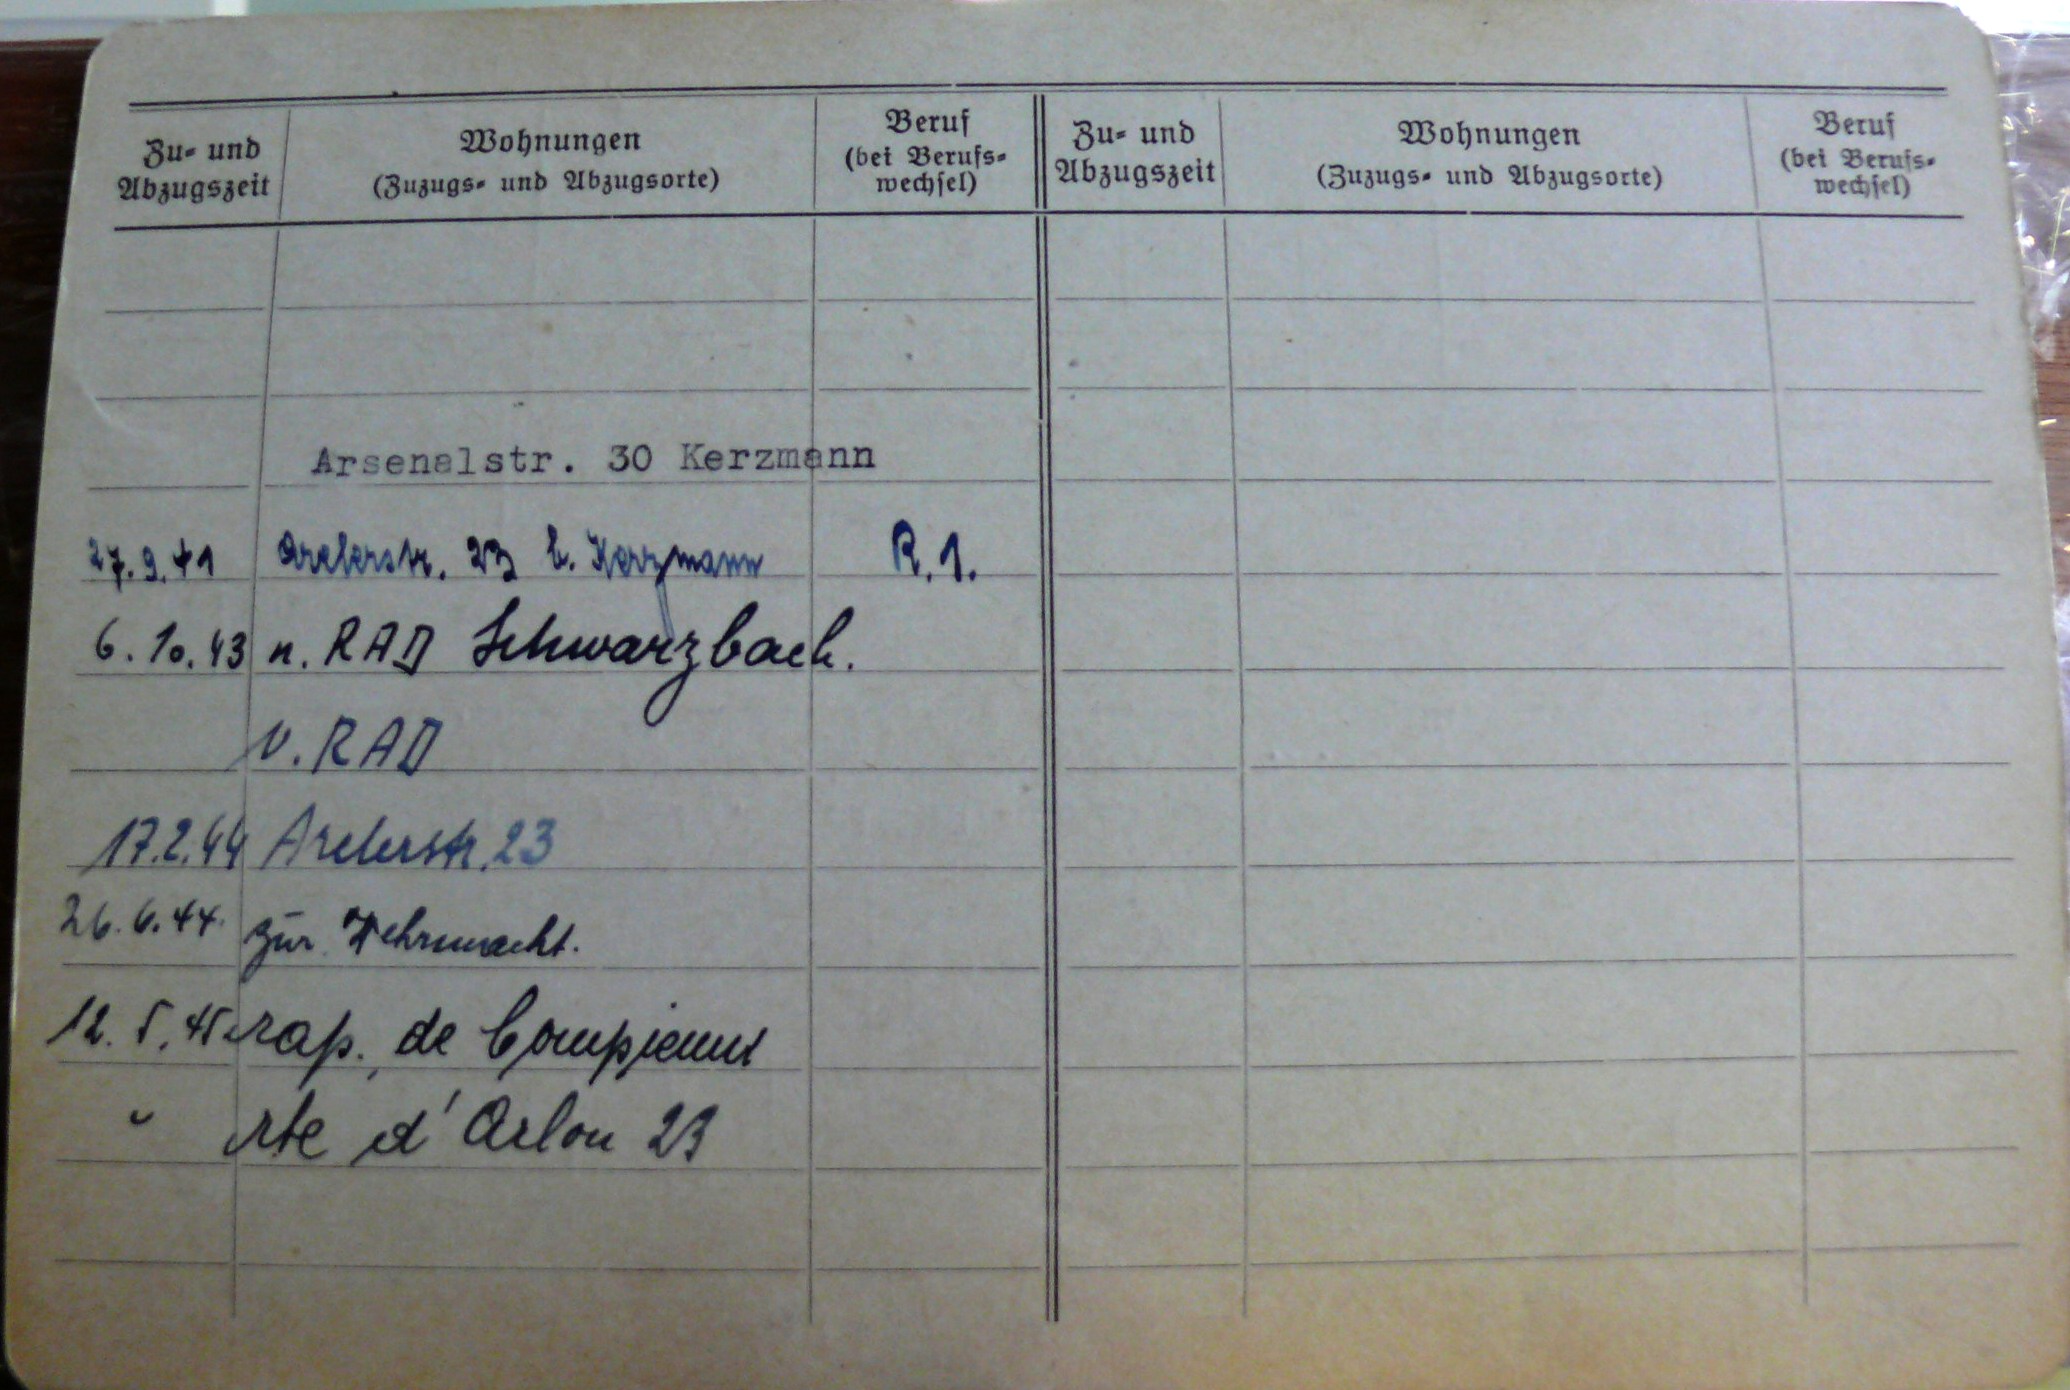 Zu- und Abzugszeit
Wohnungen
(Zuzugs- und Abzugsorte)
Beruf
(bei Berufs-
wechsel)
Zu- und
Abzugszeit
Wohnungen
(Zuzugs- und Abzugsorte)
Beruf
(bei Berufs-
wechsel)
Arsenalstr. 30 Kerzmann
27.9.41 Arelerstr. 23 b. Kerzmann R.1.
6.10.43 n. RAD Schwarzbach.
v. RAD
17.2.44 Arelerstr. 23
26.6.44. zur Wehrmacht.
12.5.45 rap. de
" rte d'Arlon 23